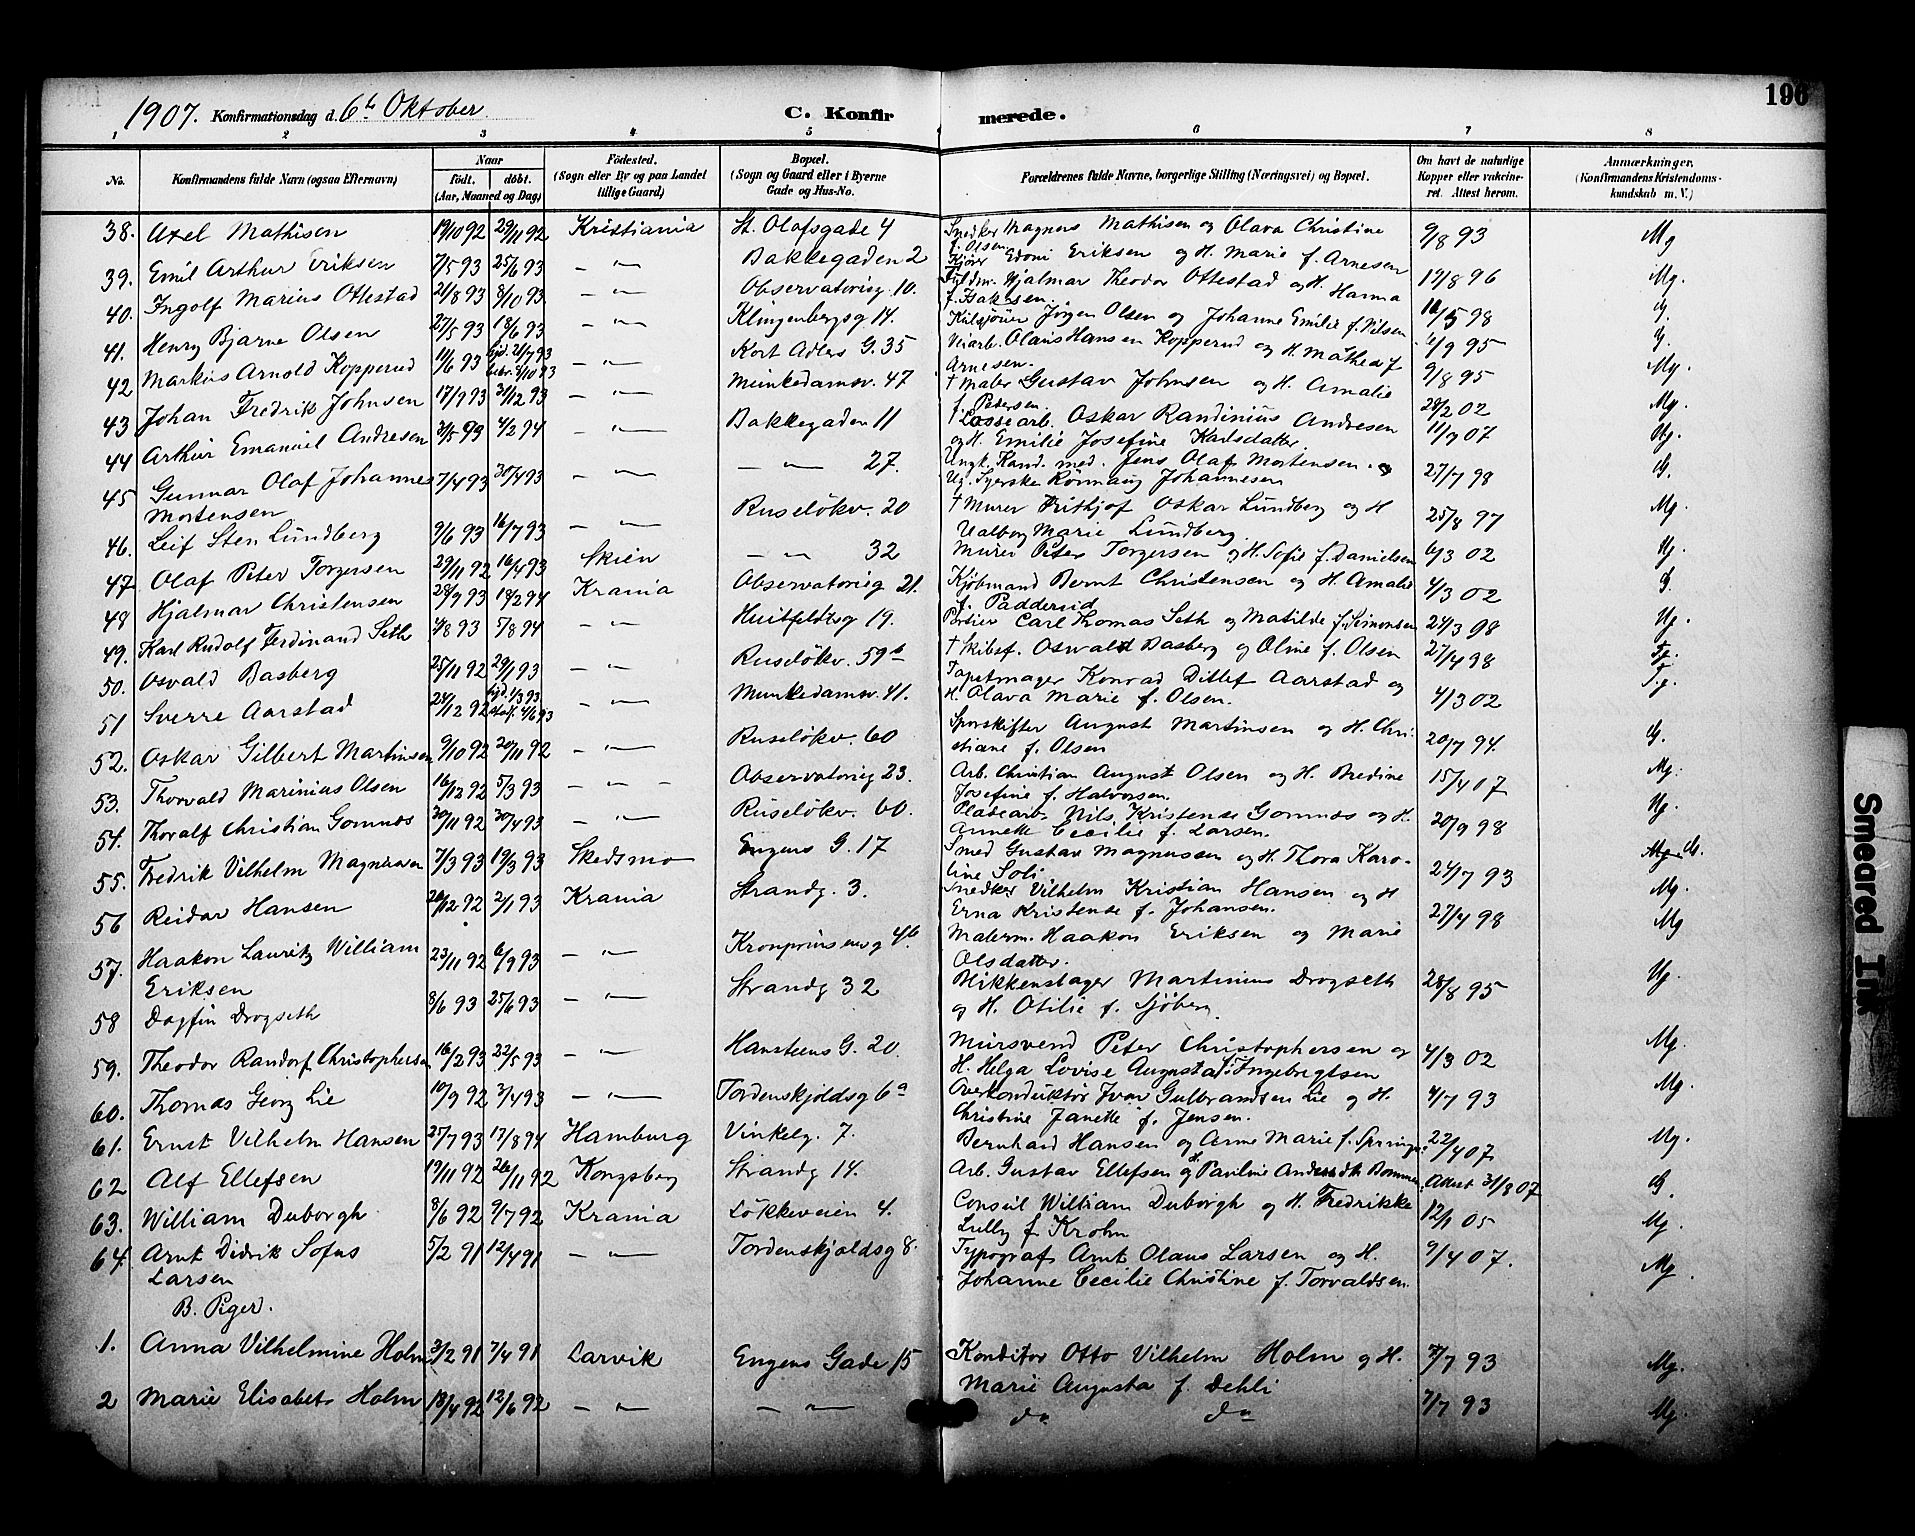 196
1907. Konfirmationsdag d. 6te Oktober
C. Konfirmerede.
1 2 3 4 5 6 7 8
No. Konfirmandens fulde Navn (ogsaa Efternavn) Naar födt. döbt. (Aar, Maaned og Dag) Födested. (Sogn eller By og paa Landet tillige Gaard) Bopæl. (Sogn og Gaard eller i Byerne Gade og Hus-No. Forældrenes fulde Navne, borgerlige Stilling (Næringsvei) og Bopæl. Om havt de naturlige Kopper eller vakcineret. Attest herom. Anmærkninger, (Konfirmandens Kristendomskundskab m. V.)
38. Axel Mathisen 19/10 92 29/11 92 Kristiania St. Olafsgade 4 Snedker Magnus Mathisen og Olava Christine f. Olsen 9/8 93 Mg
39. Emil Arthur Eriksen 7/5 93 25/6 93 – " – Bakkegaden 2 Edoni Eriksen og H. Marie f. Arnesen 19/8 96 Mg.
40. Ingolf Marius Ottestad 21/8 93 8/10 93 – " – Observatorieg. 10. Fuldm. Hjalmar Theodor Ottestad og H. Hanna f. Isaksen. 16/5 98 G.
41. Henry Bjarne Olsen 27/5 93 18/6 93 – " – Klingenbergsg 14. Jörgen Olsen og Johanne Emilie f. Nilsen 1/9 95 G.
42 Markus Arnold Kopperud 11/6 93 hjd. 21/7 93 bekr. 8/10 93 – " – Kort Adlers G. 35 Veiarb. Olaus Hansen Kopperud og H. Mathea f Arnesen. 9/8 95 Mg.
43 Johan Fredrik Johnsen 17/9 93 31/12 93 – " – Munkedamsv. 47 † Maler Gustav Johnsen og H. Amalie f. Petersen. 28/2 02 Mg.
44 Arthur Emanuel Andresen 3/5 93 4/2 94 – " – Bakkegaden 11 † Lossearb. Oskar Randinius Andresen og H. Emilie Josefine Karlsdatter 11/9 07 Mg.
45 Gunnar Olaf Johannes Mortensen 7/4 93 30/4 93 – " – – " – 27. Ungk. Kand. med. Jens Olaf Mortensen og Ug. Syerske Rönnaug Johannesen 27/7 98 G.
46. Leif Sten Lundberg 9/6 93 16/7 93 – " – Ruselökv. 20 † Murer Frithjof Oskar Lundberg og H Valborg Marie Lundberg. 25/8 97 Mg.
47 Olaf Peter Torgersen 29/11 92 16/4 93 Skien – " – 32 Murer Peter Torgersen og H. Sofie f. Danielsen 6/3 02 Mg.
48 Hjalmar Christensen 28/9 93 18/2 94 Krania Observatorieg 21. Kjöbmand Bernt Christensen og H. Amalie f. Padderud 4/3 02 G.
49. Karl Rudolf Ferdinand Seth 4/8 93 5/8 94 – " – Huitfeldtsg 19. Portier Carl Thomas Seth og Matilde f. Simonsen 24/3 98 Mg.
50. Osvald Basberg 25/11 92 29/1 93 – " – Ruselökv. 59b † Skibsf. Oswald Basberg og Oline f. Olsen 27/4 98 Tg.
51 Sverre Aarstad 24/12 92 hjd. 1/3 93 stadf. 4/6 93 – " – Munkedamsv. 41. Tapetmager Konrad Ditlef Aarstad og H. Olava Marie f. Olsen. 4/3 02 T.g.
52. Oskar Gilbert Martinsen 9/10 92 20/11 92 – " – Ruselökv. 60 Sporskifter August Martinsen og H. Christiane f. Olsen 20/7 94. G.
53. Thorvald Marinius Olsen 16/12 92 5/3 93 – " – Observatorieg 23. Arb. Christian August Olsen og H. Bredine Josefine f. Halvorsen. 15/4 07 Mg.
54. Thoralf Christian Gomnæs 30/11 92 30/4 93 – " – Ruselökv. 60. Pladearb. Nils Kristense Gomnæs og H. Annette Cecilie f. Larsen. 20/9 98 Mg.
55. Fredrik Vilhelm Magnussen 7/3 93 19/3 93 Skedsmo Engens G. 17 Smed Gustav Magnussen og H. Thora Karoline Soli 24/7 93 Mg. G.
56 Reidar Hansen 26/12 92 2/1 93 Krania Strandg. 3. Snedker Vilhelm Kristian Hansen og H Erna Kristense f. Johansen. 27/4 98 Mg.
57. Haakon Lauritz William Eriksen 23/11 92 6/9 93 – " – Kronprinsensg 4b. Malerm. Haakon Eriksen og Marie Olsdatter. Mg
58 Dagfin Drogseth 8/6 93 25/6 93 – " – Strandg 32 Blikkenslager Martinius Drogseth og H. Otilie f. Sjöberg. 28/8 95 Mg.
59. Theodor Randorf Christophersen 16/2 93 22/5 93 – " – Hansteens G. 20. Mursvend Peter Christophersen og H. Helga Lovise Augusta f. Ingebrigtsen 4/3 02 Mg.
60. Thomas Georg Lie 10/9 92 3/4 93 – " – Tordenskjoldsg 6a Overkonduktör Ivar Gulbrandsen Lie og H. Christine Janette f. Jensen. 4/7 93 Mg.
61. Ernst Vilhelm Hansen 25/7 93 17/8 94 Hamburg Vinkelg. 7. Bernhard Hansen og Anne Marie f. Springe 22/4 07 Mg.
62 Alf Ellefsen 19/11 92 26/11 92 Kongsberg Strandg 14. Arb. Gustav Ellefsen og H. Pauline Andersdtr Bommen. Attest 31/8 07 G.
63. William Duborgh 8/6 92 9/7 92 Krania Lökkeveien 4. Consul William Duborgh og H. Fredrikke Lully f. Krohn 12/1 05 Mg.
64. Arnt Didrik Sofus Larsen 5/2 91 12/4 91 – " – Tordenskjoldsg 8. Typograf Arnt Olaus Larsen og H. Johanne Cecilie Christine f. Torvaldsen. 9/4 07. Mg.
B. Piger.
1. Anna Vilhelmine Holm 3/2 91 7/4 91 Larvik Engens Gade 15 Konditor Otto Vilhelm Holm og H. Marie Augusta f. Dehli 7/7 93 Mg.
2 Marie Elisabeth Holm 18/4 92 12/6 92 – " – – " – do do 7/7 93 Mg.
Smeared Ink